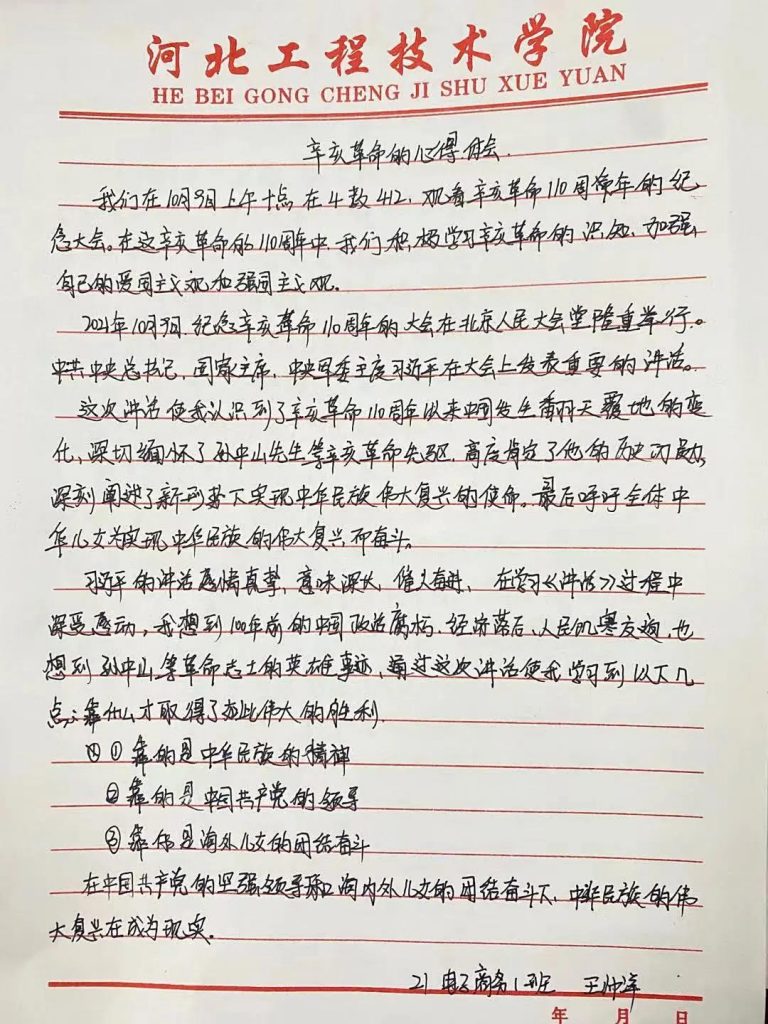 河北工程技术学院
HE BEI GONG CHENG JI SHU XUE YUAN
辛亥革命的心得体会.
我们在10月9日上午十点在4教412,观看辛亥革命110周年的纪
念大会。在这辛亥革命的110周年中,我们积极学习辛亥革命的识知,加强
自己的爱国主义观和强国主义观。
2021年10月9日,纪念辛亥革命110周年的大会在北京人民大会堂隆重举行。
中共中央总书记,国家主席,中央军委主席习近平在大会上发表重要的讲话。
这次讲话使我认识到了辛亥革命110周年以来中国发生翻天覆地的变
化,深切缅怀了孙中山先生等辛亥革命先驱,高度肯定了他的历史功勋,
深刻阐述了新形势下实现中华民族伟大复兴的使命。最后呼吁全体中
华儿女为实现中华民族的伟大复兴而奋斗。
习近平的讲话感情真挚,意味深长,催人奋进,在学习《讲话》过程中
深受感动,我想到100年前的中国政治腐朽,经济落后,人民饥寒交迫,也
想到孙中山等革命志士的英雄事迹,通过这次讲话使我学习到以下几
点:靠什么才取得了如此伟大的胜利.
①靠的是中华民族的精神
②靠的是中国共产党的领导
③靠的是海外儿女的团结奋斗
在中国共产党的坚强领导和海内外儿女的团结奋斗下,中华民族的伟
大复兴在成为现实。
21电子商务1班 王帅洋
年 月 日